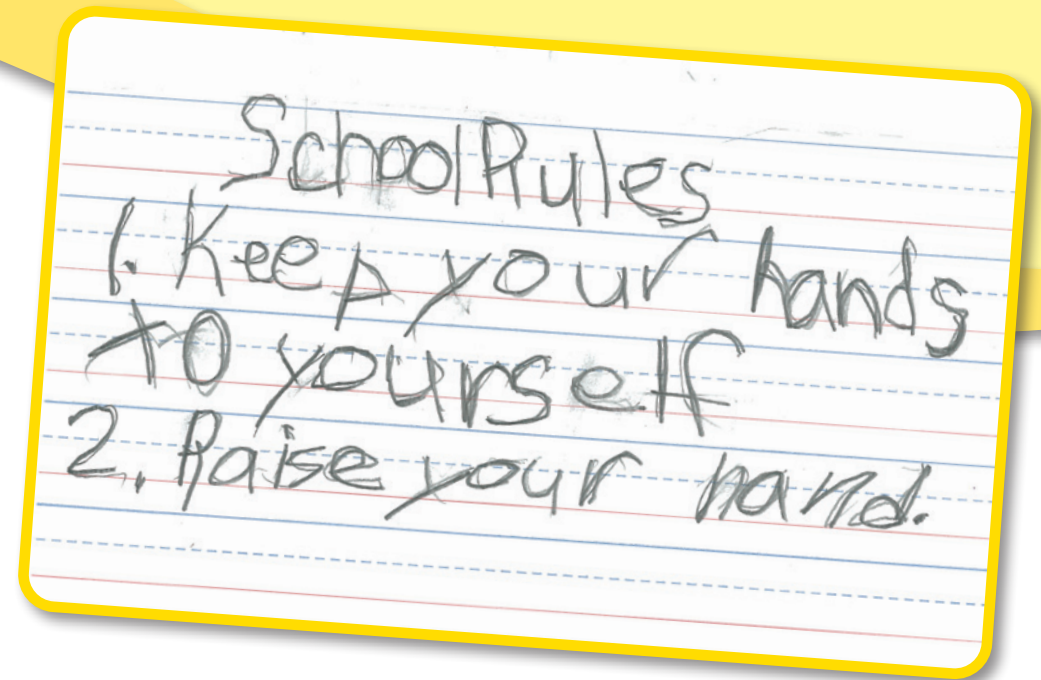 School Rules
1. Keep your hands
to yourself
2. Raise your hand.